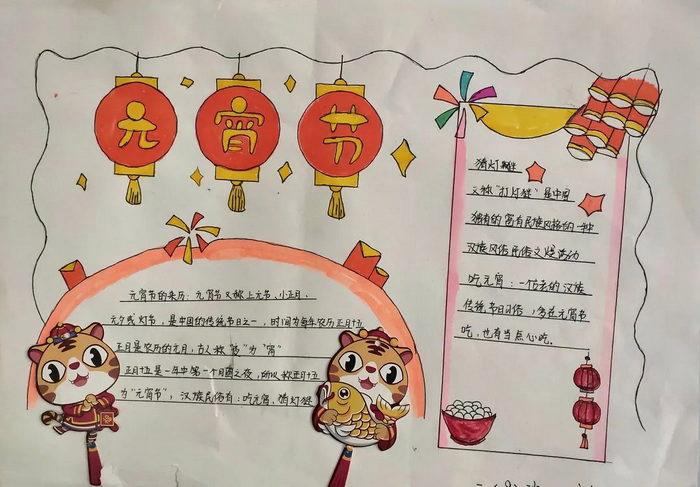 元宵节
元宵节的来历：元宵节又称上元节、小正月、
元夕或灯节，是中国的传统节日之一，时间为每年农历正月十五
正月是农历的元月，古人称"夜"为"宵"
正月十五是一年中第一个月圆之夜，所以称正月十五
为"元宵节"，汉族民俗有：吃元宵、猜灯谜
猜灯谜
又称"打灯谜"是中国
独有的富有民族风格的一种
汉族风俗民俗文娱活动
吃元宵：一种古老的汉族
传统节日习俗，多在元宵节
吃，也有当点心吃。